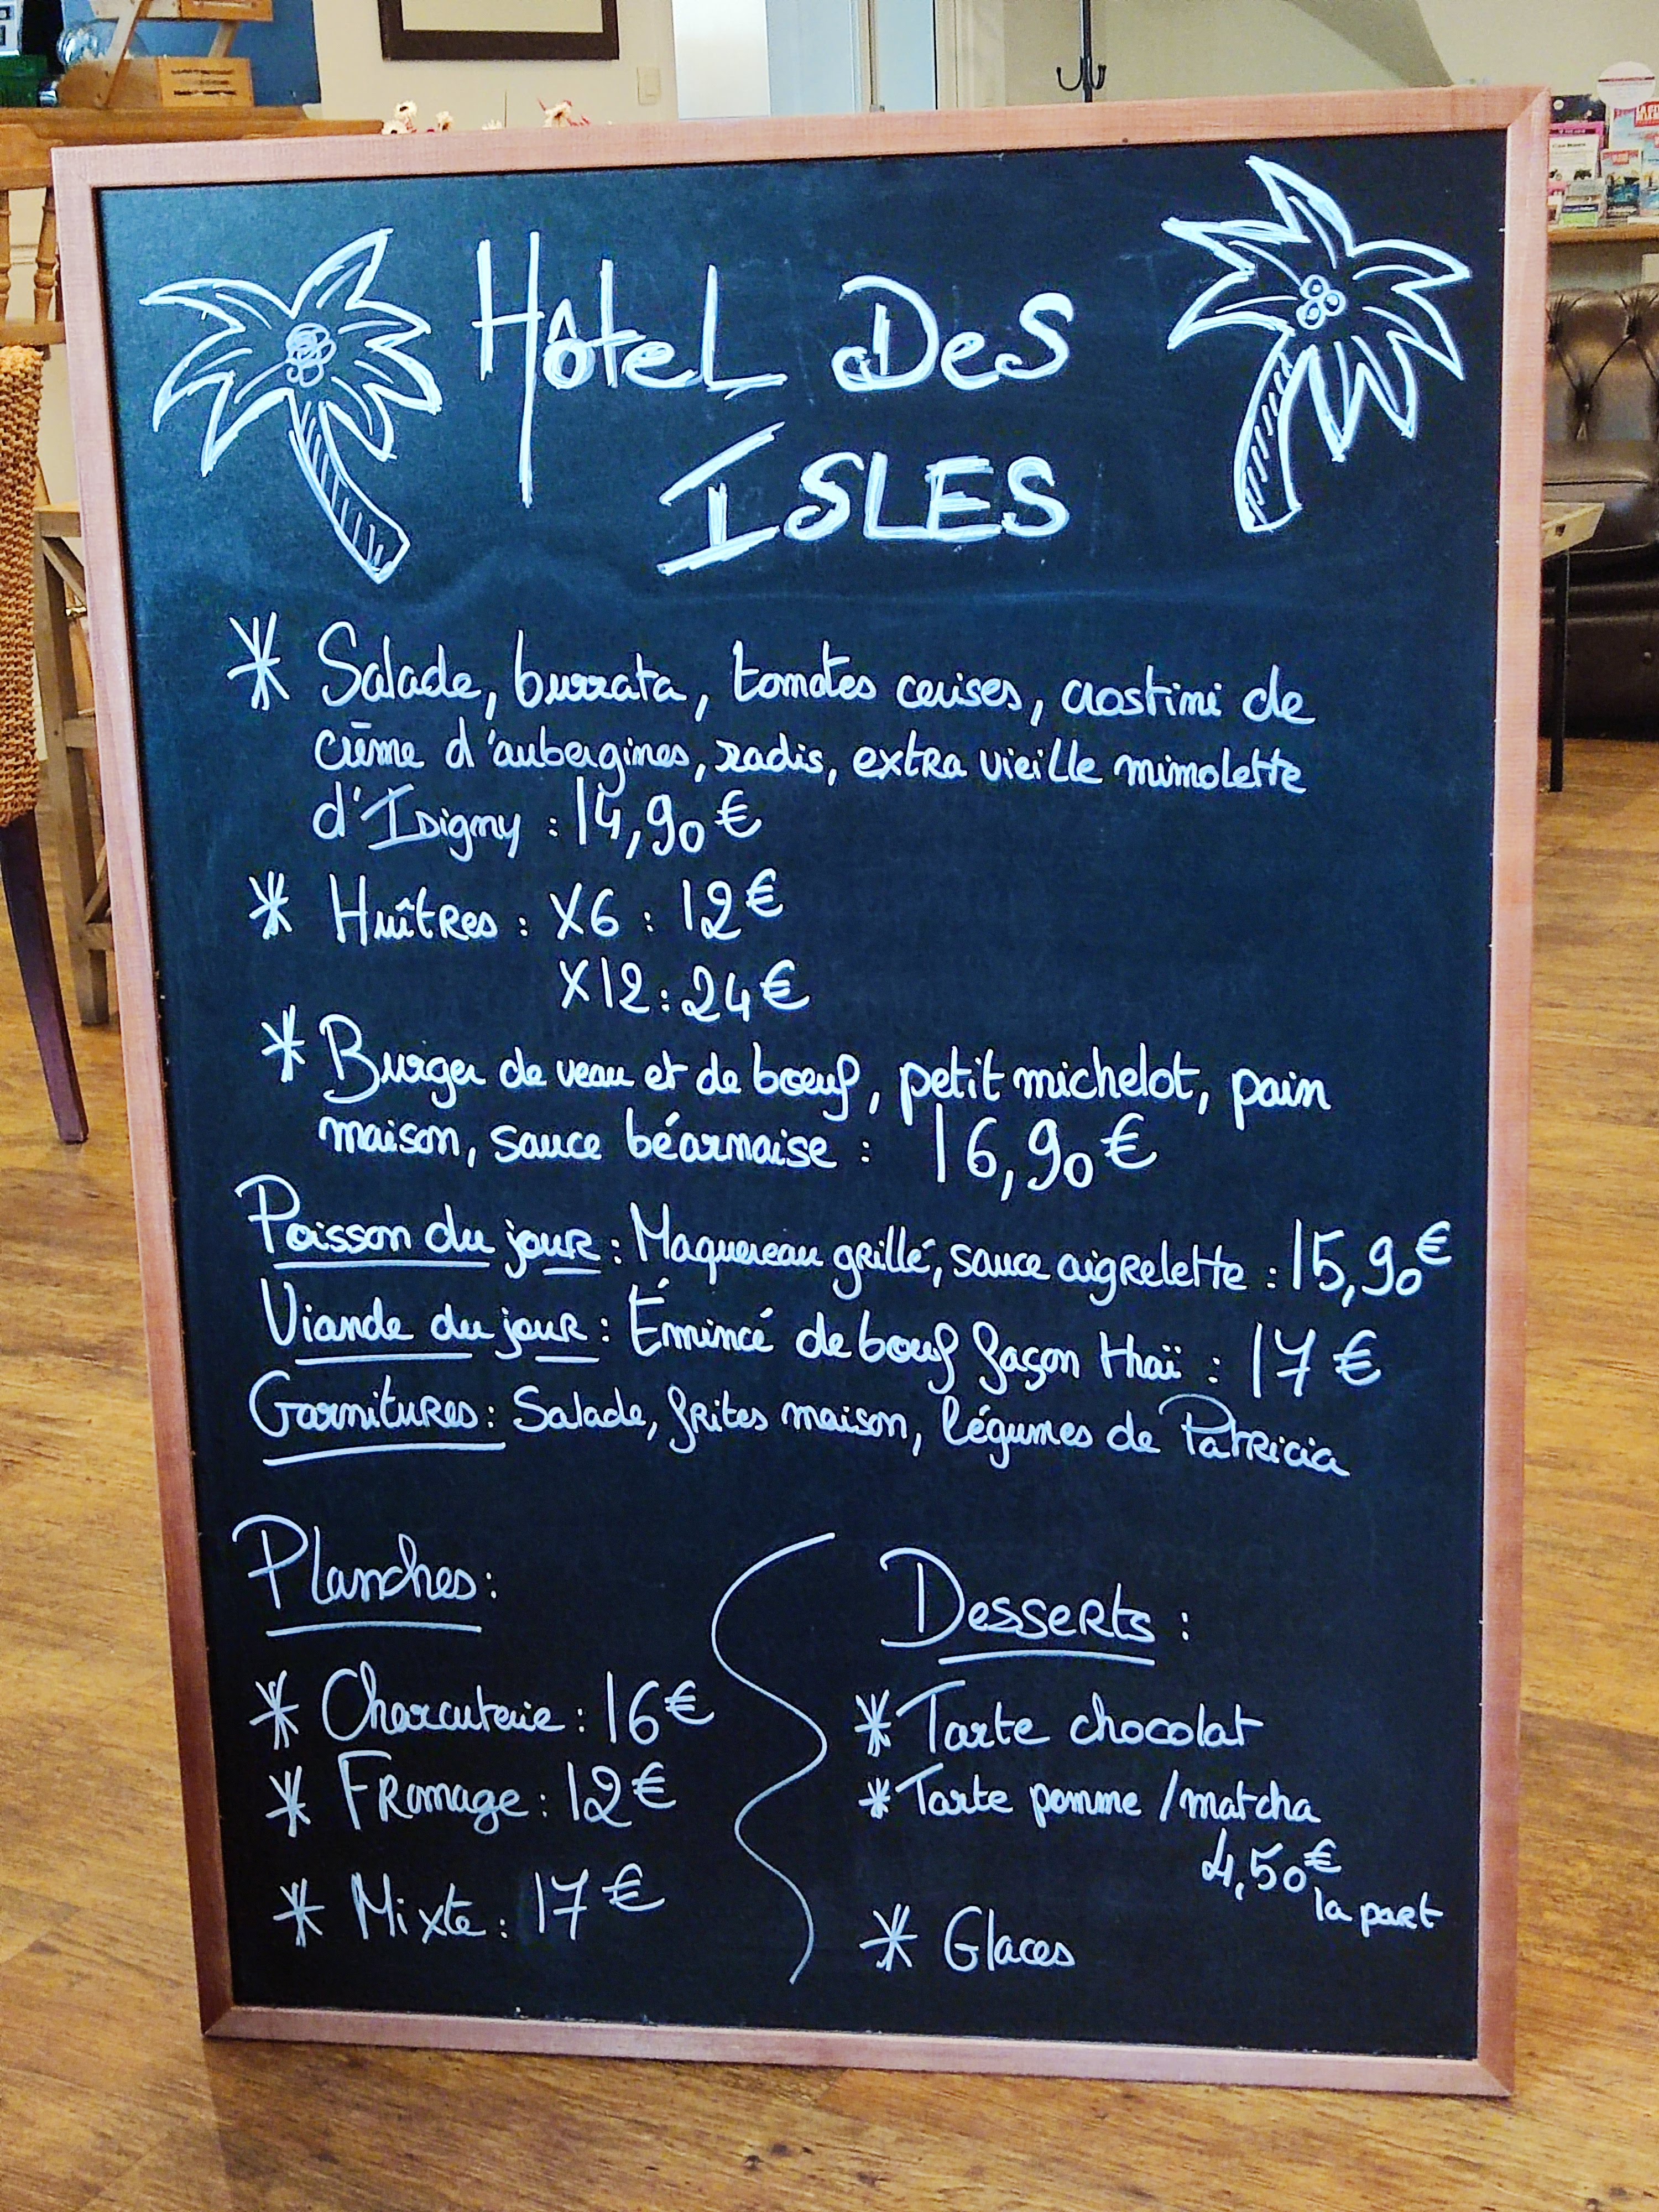 Hôtel Des
ISLES
* Salade, burrata, tomates cerises, crostini de
crème d'aubergines, radis, extra vieille mimolette
d'Isigny : 14,90 €
* Huîtres : X6 : 12 €
X12 : 24 €
* Burger de veau et de bœuf, petit michelot, pain
maison, sauce béarnaise : 16,90 €
Poisson du jour : Maquereau grillé, sauce aigrelette : 15,90 €
Viande du jour : Émincé de bœuf façon thaï : 17 €
Garnitures : Salade, frites maison, légumes de Patricia
Planches :
* Charcuterie : 16 €
* Fromage : 12 €
* Mixte : 17 €
Desserts :
* Tarte chocolat
* Tarte pomme / matcha
4,50 €
la part
* Glaces